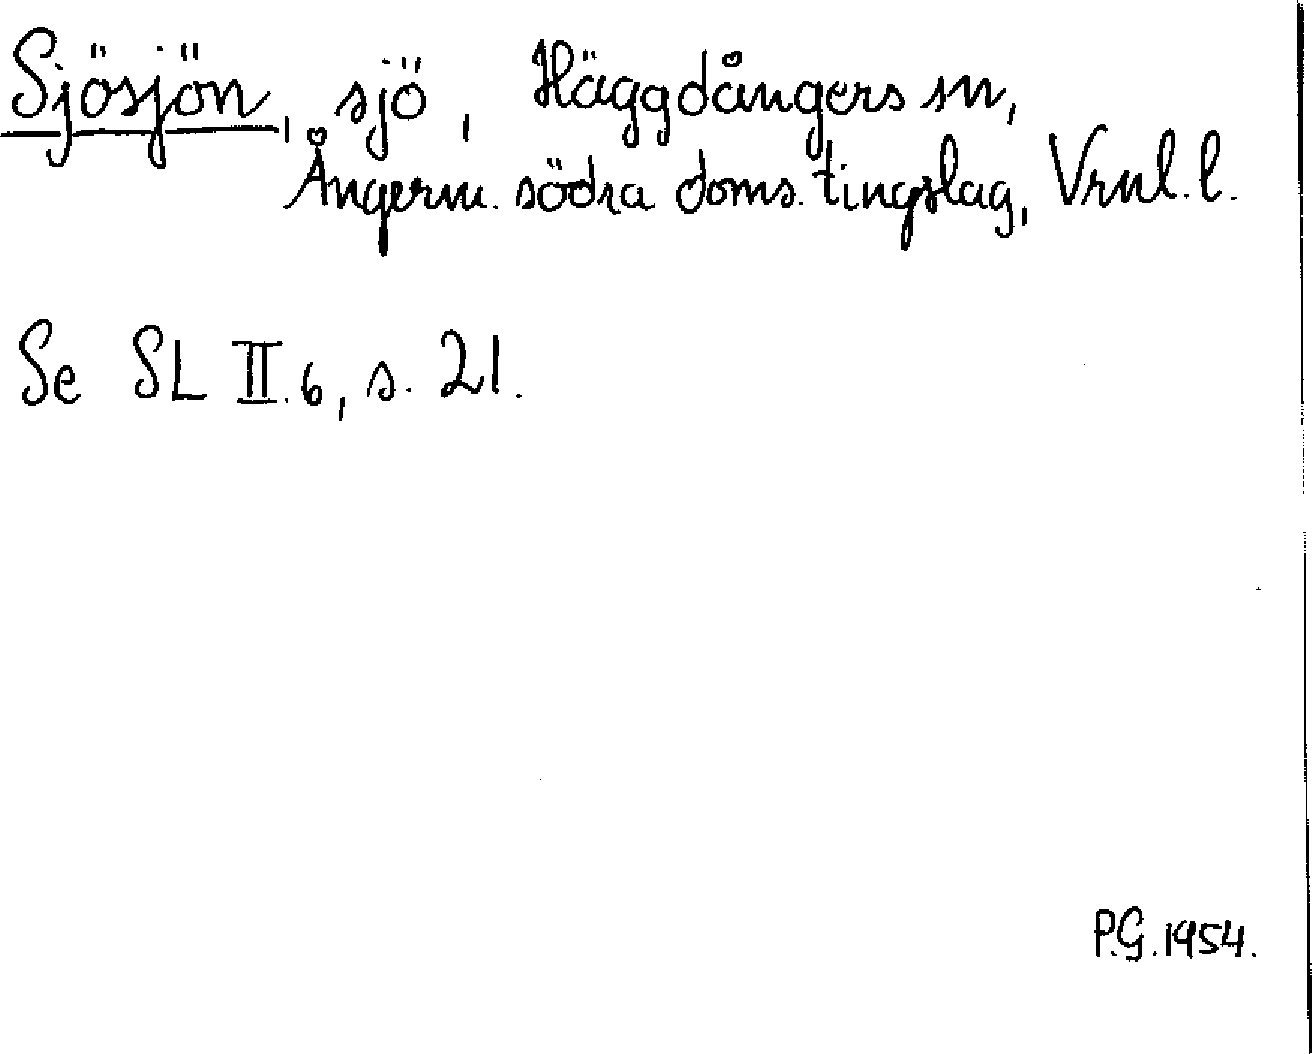 Sjösjön, sjö, Häggdångers sn,
Ångerm. södra doms. tingslag, Vrnl. l.
Se SL II.6, s. 21.
P.G. 1954.